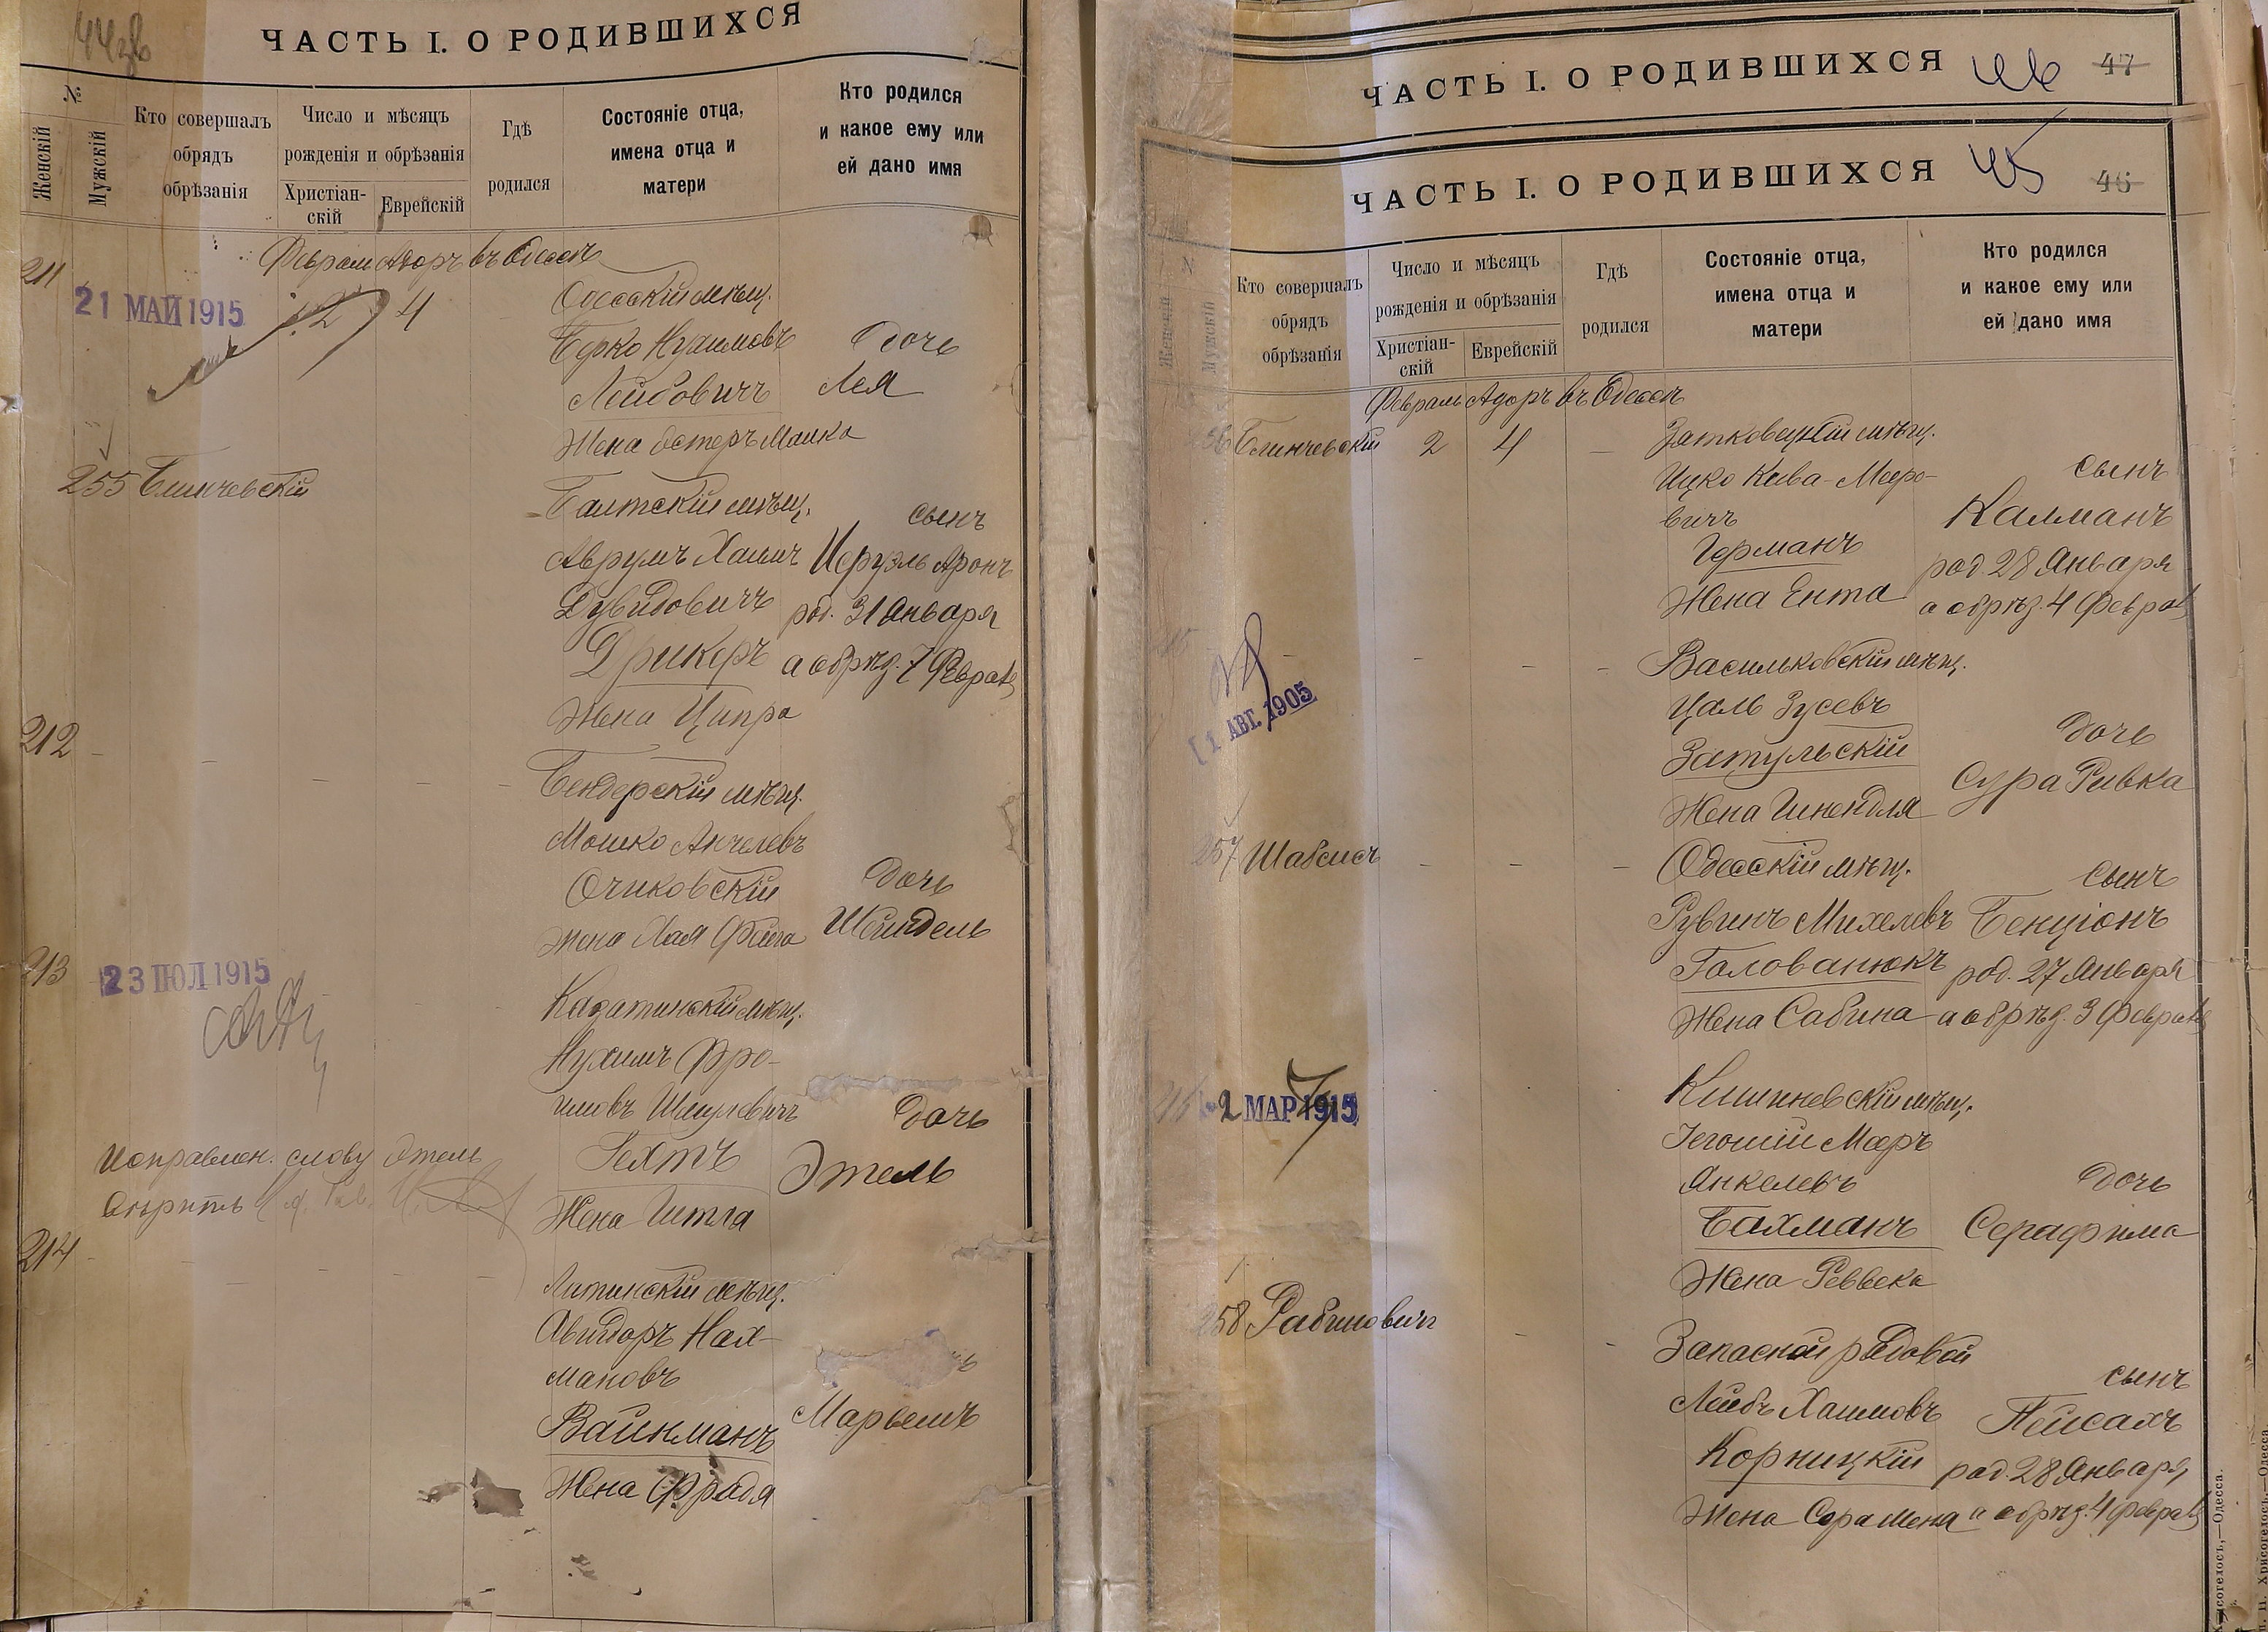 ЧАСТЬ I. О РОДИВШИХСЯ
№
Женскій
Мужскій
Кто совершалъ
обрядъ
обрѣзанія
Число и мѣсяцъ
рожденія и обрѣзанія
Христіан-
скій
Еврейскій
Гдѣ
родился
Состояніе отца,
имена отца и
матери
Кто родился
и какое ему или
ей дано имя
Февраль Адоръ въ Одессѣ
211
21 МАЙ 1915
2
4
Одесскій мѣщ.
Берко Нухимовъ
Лейбовичъ
Жена Эстеръ Малка
Дочь
Лея
255 Блинчевскій
Балтскій мѣщ.
Аврумъ Хаимъ
Дувидовичъ
Дрикеръ
Жена Ципра
сынъ
Исруэль Аронъ
род. 31 Января
а обрѣз. 7 Феврал
212
Бендерскій мѣщ.
Мошко Анчелевъ
Очиковскій
Жена Хая Фейга
Дочь
Шейндель
213
23 ІЮЛ 1915
Казатинскій мѣщ.
Нухимъ Фро-
имовъ Шмулевичъ
Гехтъ
Жена Гитла
Дочь
Этель
Исправлен. слову Этель
вѣрить
214
Липинскій мѣщ.
Авигдоръ Нах-
мановъ
Вайнманъ
Жена Фрадя
Марьемъ
ЧАСТЬ I. О РОДИВШИХСЯ
46
47
ЧАСТЬ I. О РОДИВШИХСЯ
45
46
Женскій
Мужскій
Кто совершалъ
обрядъ
обрѣзанія
Число и мѣсяцъ
рожденія и обрѣзанія
Христіан-
скій
Еврейскій
Гдѣ
родился
Состояніе отца,
имена отца и
матери
Кто родился
и какое ему или
ей дано имя
Февраль Адоръ въ Одессѣ
256 Блинчевскій
2
4
Затковецкій мѣщ.
Ицко Кива-Меро-
вичъ
Германъ
Жена Ента
сынъ
Калманъ
род 28 Января
а обрѣз. 4 Феврал
1 АВГ. 1905
Васильковскій мѣщ.
Цаль Зусевъ
Затульскій
Жена Шнейдля
Дочь
Сура Ривка
257 Шабсисъ
Одесскій мѣщ.
Рувинъ Михелевъ
Голованюкъ
Жена Сабина
сынъ
Бенціонъ
род. 27 Января
а обрѣз. 3 Феврал
2 МАР 1915
Кишиневскій мѣщ.
Іегошій Меръ
Янкелевъ
Бахманъ
Жена Реввека
Дочь
Серафима
258 Рабиновичъ
Запасной рядовой
Лейбъ Хаимовъ
Корницкій
Жена Сора Мена
сынъ
Пейсахъ
род. 28 Января
а обрѣз. 4 Феврал
Хрисогелосъ,—Одесса.